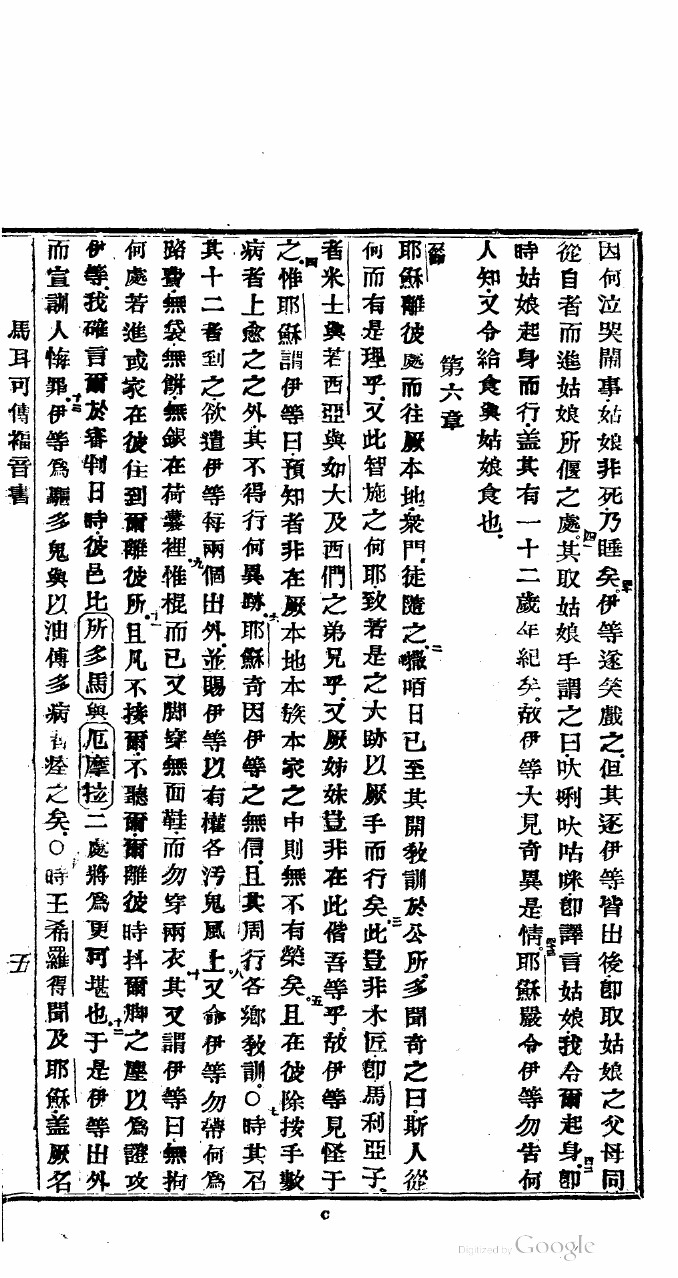 因何泣哭鬧事姑娘非死乃睡矣伊等遂笑戲之但其逐伊等皆出後卽取姑娘之父母同
從自者而進姑娘所偃之處其取姑娘手謂之曰吠唎吠咕咪卽譯言姑娘我令爾起身卽
時姑娘起身而行盖其有一十二歲年紀矣故伊等大見奇異是情耶穌嚴令伊等勿告何
人知又令給食與姑娘食也
第六章
耶穌離彼處而往厥本地衆門徒隨之嘥咟日已至其開教訓於公所多聞奇之曰斯人從
何而有是理乎又此智施之何耶致若是之大跡以厥手而行矣此豈非木匠卽馬利亞子
者米士與若西亞與如大及西們之弟兄乎又厥姊妹豈非在此偕吾等乎故伊等見怪于
之惟耶穌謂伊等曰預知者非在厥本地本族本家之中則無不有榮矣且在彼除按手數
病者上愈之之外其不得行何異跡耶穌奇因伊等之無信且其周行各鄉教訓○時其召
其十二者到之欲遣伊等每兩個出外並賜伊等以有權各污鬼風上又命伊等勿帶何爲
路費無袋無餅無銀在荷囊裡惟棍而已又脚穿無面鞋而勿穿兩衣其又謂伊等曰無拘
何處若進或家在彼住到爾離彼所且凡不接爾不聽爾爾離彼時抖爾脚之塵以爲證攻
伊等我確言爾於審判日時彼邑比所多馬與厄摩拉二處將爲更可堪也于是伊等出外
而宣訓人悔罪伊等爲驅多鬼與以油傅多病者痊之矣○時王希羅得聞及耶穌盖厥名
馬耳可傳福音書
五
C
Digitized by Google